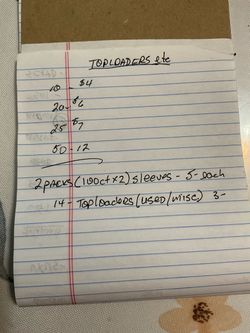 TOPLOADERS etc
10 - $4
20 - $6
25 - $7
50 - 12
2 packs (100ct x 2) sleeves - 5 - each
14 - Toploaders (used/misc) 3 -